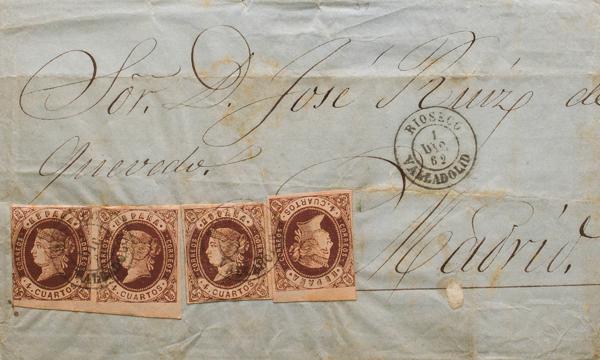 Sōr. D. José Ruiz de
Quevedo.
Madrid.
RIOSECO
1
DIC.
62
VALLADOLID
CORREOS ESPAÑA
4 CUARTOS
CORREOS ESPAÑA
4 CUARTOS
CORREOS ESPAÑA
4 CUARTOS
CORREOS ESPAÑA
4 CUARTOS